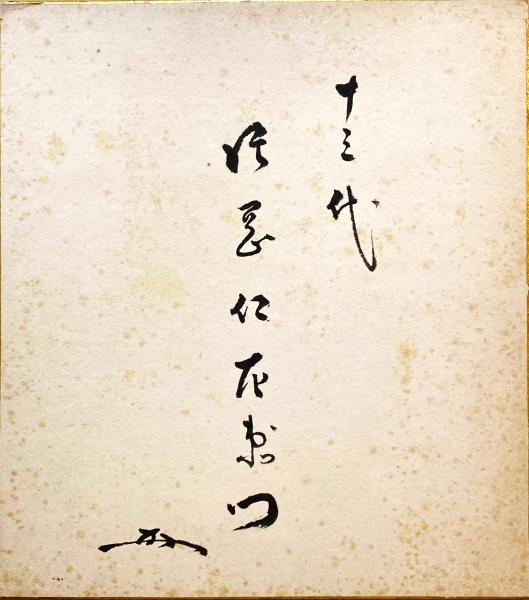 十三代
片岡仁左衛門